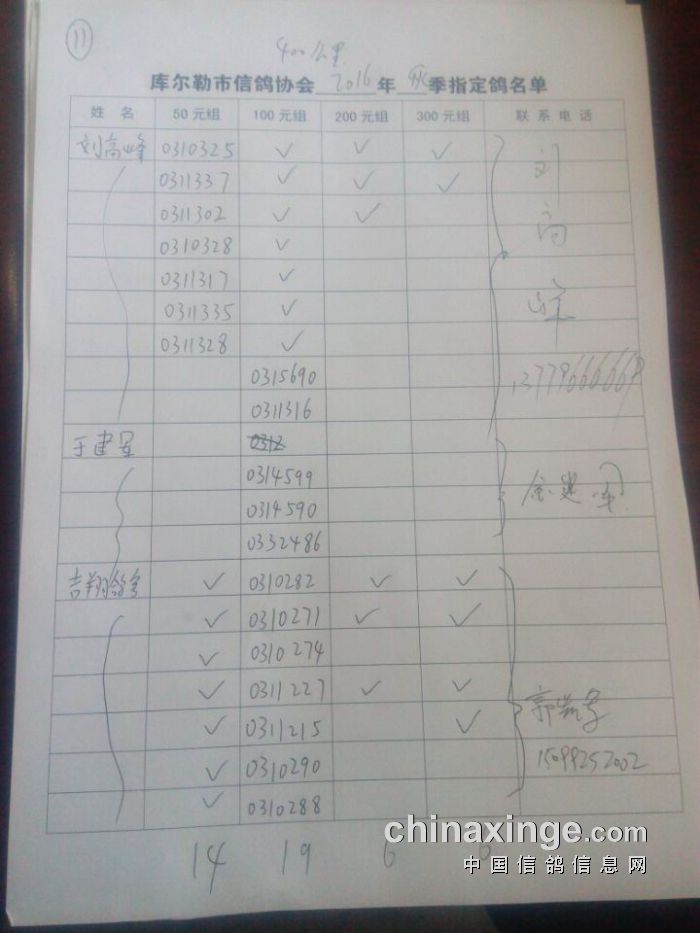 11
400公里
库尔勒市信鸽协会 2016 年 秋 季指定鸽名单
姓 名 50元组 100元组 200元组 300元组 联系电话
刘高峰 0310325 ✓ ✓ ✓ 刘高峰
0311337 ✓ ✓ ✓
0311302 ✓ ✓
0310328 ✓
0311317 ✓
0311335 ✓
0311328 ✓
0315690 13779666669
0311316
于建军
0314599
0314590
0332486
吉翔鸽舍 ✓ 0310282 ✓ ✓
✓ 0310271 ✓ ✓
✓ 0310274
✓ 0311227 ✓ ✓
✓ 0311215 ✓
✓ 0310290 15099252002
✓ 0310288
14 19 6
chinaxinge.com
中国信鸽信息网